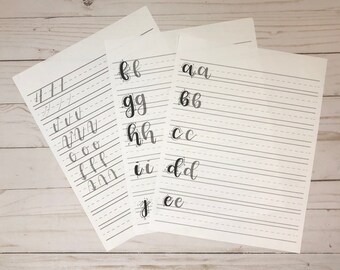 ff
gg
hh
ii
j
aa
bb
cc
dd
ee